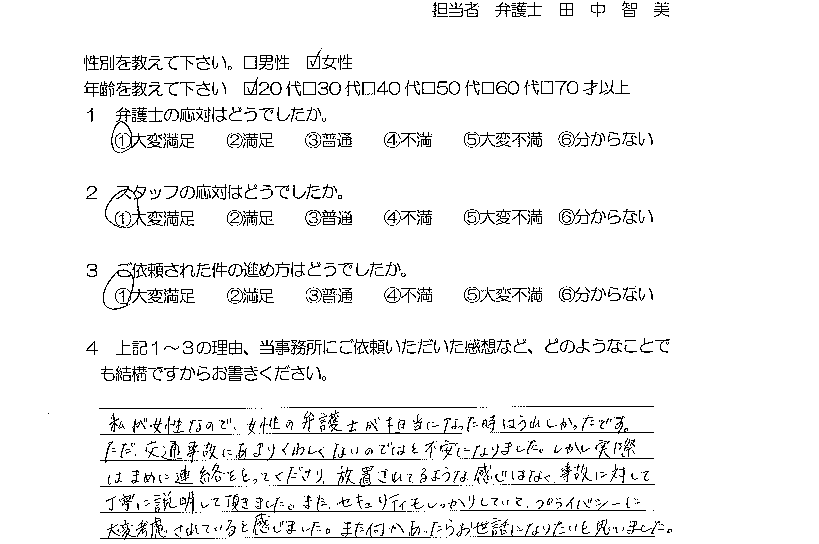 担当者 弁護士 田中智美
性別を教えて下さい。□男性 ☑女性
年齢を教えて下さい ☑20代□30代□40代□50代□60代□70才以上
1 弁護士の応対はどうでしたか。
①大変満足 ②満足 ③普通 ④不満 ⑤大変不満 ⑥分からない
2 スタッフの応対はどうでしたか。
①大変満足 ②満足 ③普通 ④不満 ⑤大変不満 ⑥分からない
3 ご依頼された件の進め方はどうでしたか。
①大変満足 ②満足 ③普通 ④不満 ⑤大変不満 ⑥分からない
4 上記1～3の理由、当事務所にご依頼いただいた感想など、どのようなことで
も結構ですからお書きください。
私が女性なので、女性の弁護士が担当になった時はうれしかったです。
ただ、交通事故にあまりくわしくないのではと不安になりました。しかし実際
はまめに連絡をとってくださり、放置されてるような感じはなく、事故に対して
丁寧に説明して頂きました。また、セキュリティもしっかりしていて、プライバシーに
大変考慮されていると感じました。また何かあったらお世話になりたいと思いました。